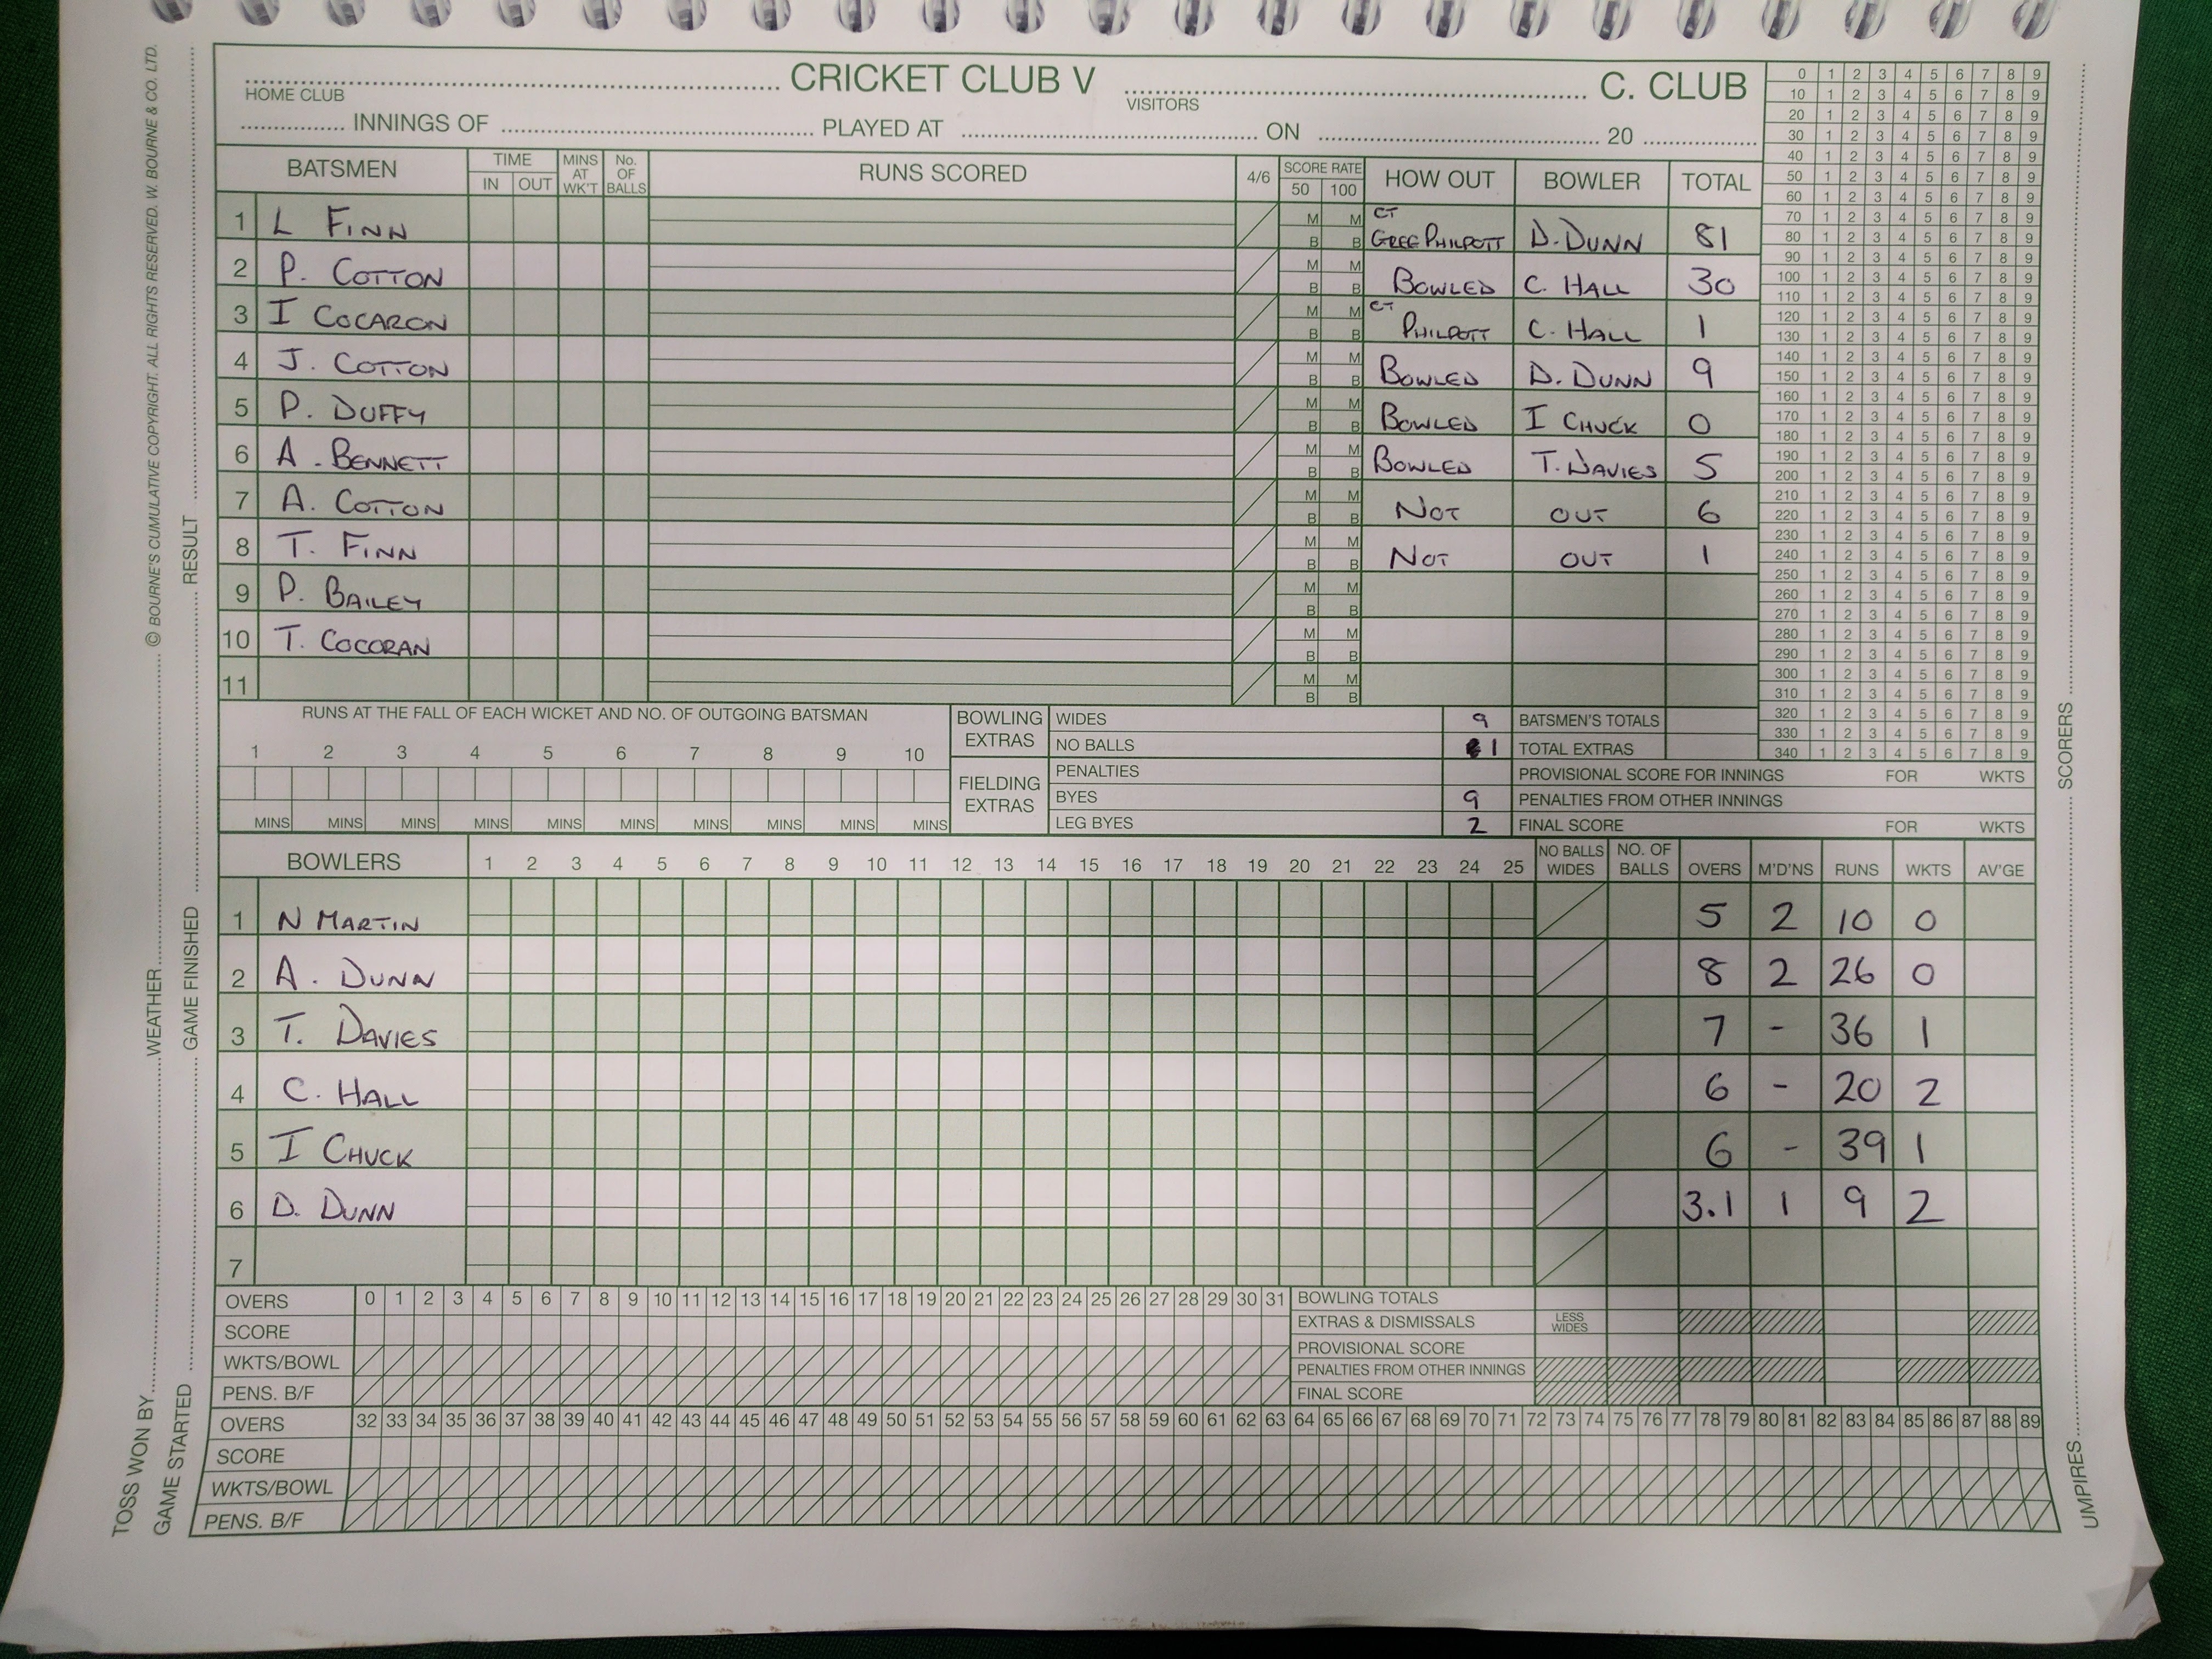 CRICKET CLUB V C. CLUB
HOME CLUB VISITORS
INNINGS OF PLAYED AT ON 20
BATSMEN TIME IN OUT MINS AT WK'T No. OF BALLS RUNS SCORED 4/6 SCORE RATE 50 100 HOW OUT BOWLER TOTAL
1 L FINN M M B B CT GREG PHILPOTT D. DUNN 81
2 P. COTTON M M B B BOWLED C. HALL 30
3 I COCARON M M B B CT PHILPOTT C. HALL 1
4 J. COTTON M M B B BOWLED D. DUNN 9
5 P. DUFFY M M B B BOWLED I CHUCK 0
6 A. BENNETT M M B B BOWLED T. DAVIES 5
7 A. COTTON M M B B NOT OUT 6
8 T. FINN M M B B NOT OUT 1
9 P. BAILEY M M B B
10 T. COCORAN M M B B
11 M M B B
0 1 2 3 4 5 6 7 8 9
10 1 2 3 4 5 6 7 8 9
20 1 2 3 4 5 6 7 8 9
30 1 2 3 4 5 6 7 8 9
40 1 2 3 4 5 6 7 8 9
50 1 2 3 4 5 6 7 8 9
60 1 2 3 4 5 6 7 8 9
70 1 2 3 4 5 6 7 8 9
80 1 2 3 4 5 6 7 8 9
90 1 2 3 4 5 6 7 8 9
100 1 2 3 4 5 6 7 8 9
110 1 2 3 4 5 6 7 8 9
120 1 2 3 4 5 6 7 8 9
130 1 2 3 4 5 6 7 8 9
140 1 2 3 4 5 6 7 8 9
150 1 2 3 4 5 6 7 8 9
160 1 2 3 4 5 6 7 8 9
170 1 2 3 4 5 6 7 8 9
180 1 2 3 4 5 6 7 8 9
190 1 2 3 4 5 6 7 8 9
200 1 2 3 4 5 6 7 8 9
210 1 2 3 4 5 6 7 8 9
220 1 2 3 4 5 6 7 8 9
230 1 2 3 4 5 6 7 8 9
240 1 2 3 4 5 6 7 8 9
250 1 2 3 4 5 6 7 8 9
260 1 2 3 4 5 6 7 8 9
270 1 2 3 4 5 6 7 8 9
280 1 2 3 4 5 6 7 8 9
290 1 2 3 4 5 6 7 8 9
300 1 2 3 4 5 6 7 8 9
310 1 2 3 4 5 6 7 8 9
320 1 2 3 4 5 6 7 8 9
330 1 2 3 4 5 6 7 8 9
340 1 2 3 4 5 6 7 8 9
RUNS AT THE FALL OF EACH WICKET AND NO. OF OUTGOING BATSMAN
1 2 3 4 5 6 7 8 9 10
MINS MINS MINS MINS MINS MINS MINS MINS MINS MINS
BOWLING EXTRAS
WIDES 9
NO BALLS 1
FIELDING EXTRAS
PENALTIES
BYES 9
LEG BYES 2
BATSMEN'S TOTALS
TOTAL EXTRAS
PROVISIONAL SCORE FOR INNINGS FOR WKTS
PENALTIES FROM OTHER INNINGS
FINAL SCORE FOR WKTS
BOWLERS 1 2 3 4 5 6 7 8 9 10 11 12 13 14 15 16 17 18 19 20 21 22 23 24 25 NO BALLS WIDES NO. OF BALLS OVERS M'D'NS RUNS WKTS AV'GE
1 N MARTIN 5 2 10 0
2 A. DUNN 8 2 26 0
3 T. DAVIES 7 - 36 1
4 C. HALL 6 - 20 2
5 I CHUCK 6 - 39 1
6 D. DUNN 3.1 1 9 2
7
OVERS 0 1 2 3 4 5 6 7 8 9 10 11 12 13 14 15 16 17 18 19 20 21 22 23 24 25 26 27 28 29 30 31
SCORE
WKTS/BOWL
PENS. B/F
BOWLING TOTALS
EXTRAS & DISMISSALS LESS WIDES
PROVISIONAL SCORE
PENALTIES FROM OTHER INNINGS
FINAL SCORE
OVERS 32 33 34 35 36 37 38 39 40 41 42 43 44 45 46 47 48 49 50 51 52 53 54 55 56 57 58 59 60 61 62 63 64 65 66 67 68 69 70 71 72 73 74 75 76 77 78 79 80 81 82 83 84 85 86 87 88 89
SCORE
WKTS/BOWL
PENS. B/F
TOSS WON BY WEATHER © BOURNE'S CUMULATIVE COPYRIGHT. ALL RIGHTS RESERVED. W. BOURNE & CO. LTD.
GAME STARTED GAME FINISHED RESULT
UMPIRES SCORERS